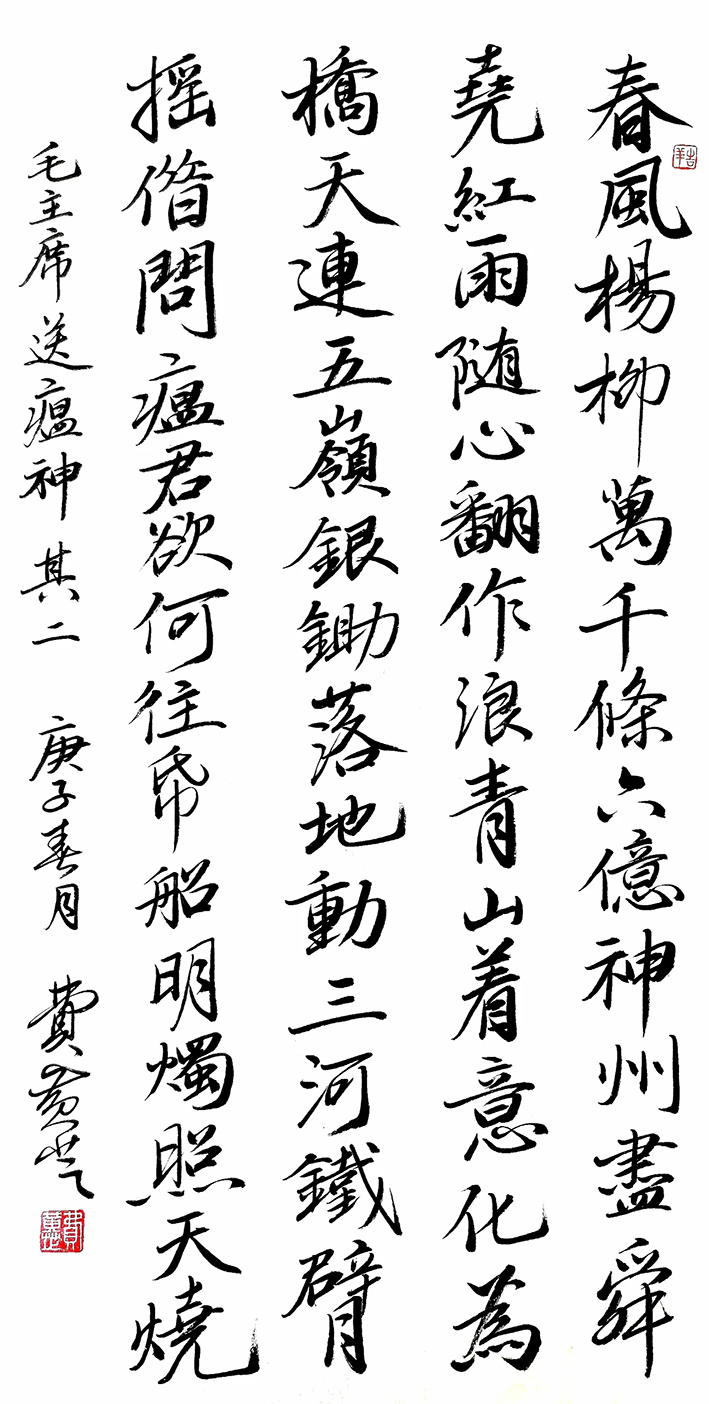 吉羊
春風楊柳萬千條六億神州盡舜
堯紅雨随心翻作浪青山着意化為
橋天連五嶺銀鋤落地動三河鐵臂
摇借問瘟君欲何往帋船明燭照天燒
毛主席送瘟神 其二 庚子春月 費